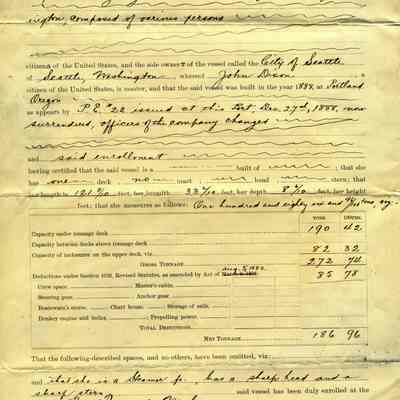 ington, composed of various persons
citizens of the United States, and the sole owners of the vessel called the City of Seattle
of Seattle, Washington, whereof John Dixon a
citizen of the United States, is master, and that the said vessel was built in the year 1888, at Portland
Oregon
as appears by P.E. #22 issued at this Port, Dec. 27th, 1888, now
surrendered, officers of the company changed
and said enrollment
having certified that the said vessel is a built of ; that she
has one deck no mast , head stern; that
her length is 121 5/10 feet, her breadth 33 5/10 feet, her depth 8 5/10 feet, her height
feet; that she measures as follows: One hundred and eighty six and 96/100 tons, viz:
TONS. 100THS.
Capacity under tonnage deck 190 42
Capacity between decks above tonnage deck
Capacity of inclosures on the upper deck, viz: 82 32
GROSS TONNAGE 272 74
Deductions under Section 4153, Revised Statutes, as amended by Act of Aug. 5, 1882. 85 78
Crew space, Master's cabin,
Steering gear, Anchor gear
Boatswain's stores, Chart house, Storage of sails,
Donkey engine and boiler, Propelling power,
TOTAL DEDUCTIONS,
NET TONNAGE 186 96
That the following-described spaces, and no others, have been omitted, viz:
and that she is a Steamer , has a sharp head and a
sharp stern said vessel has been duly enrolled at the